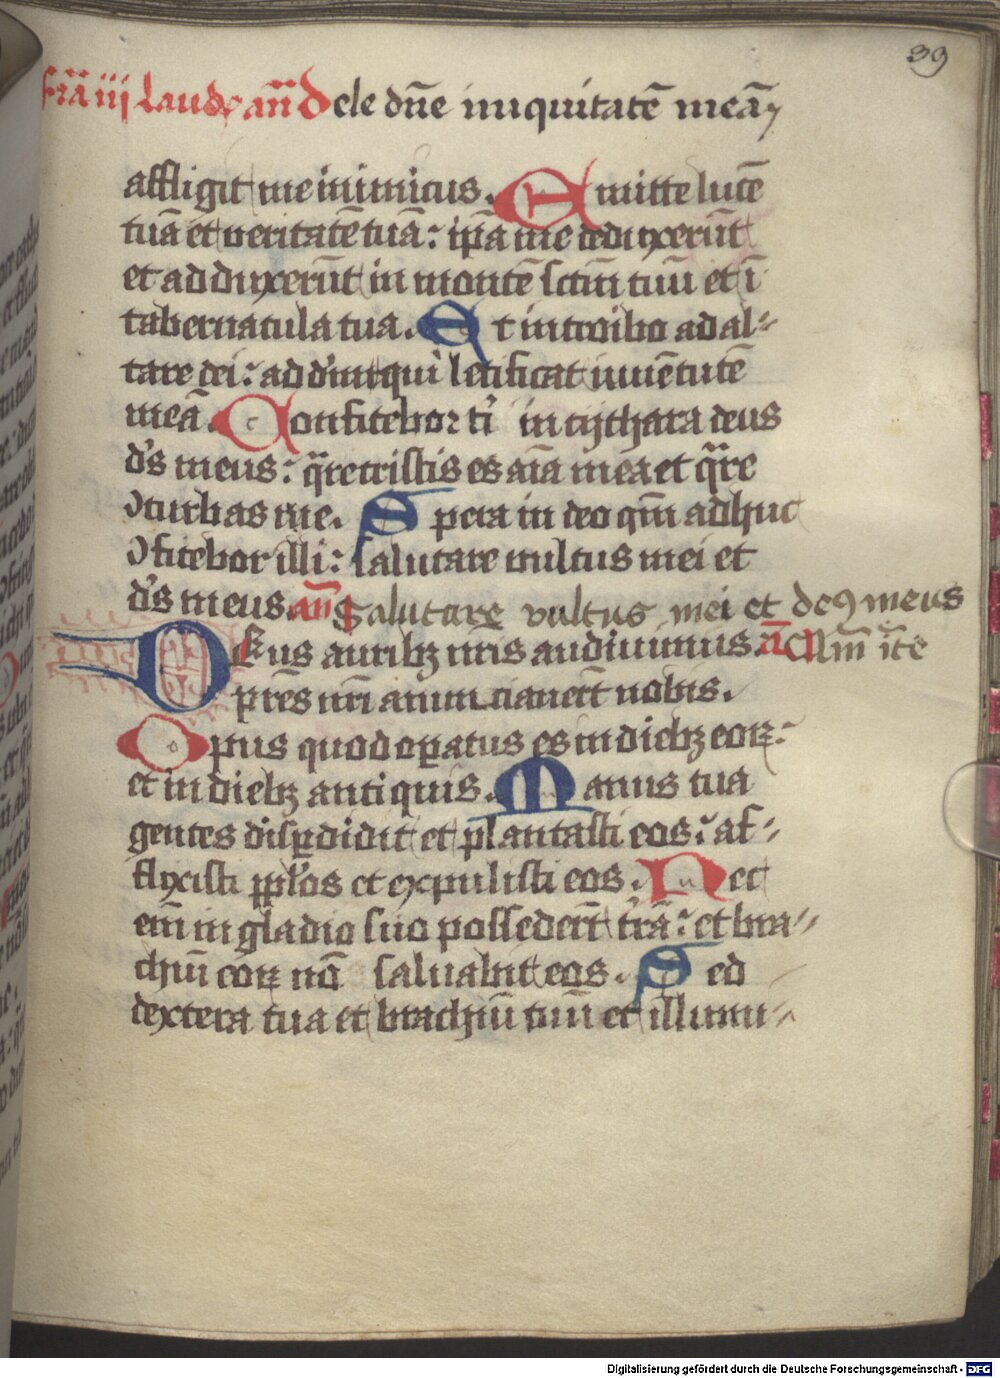 39
fr̄a iij laud᷒ an̄ Dele dn̄e iniquitatē meā
affligit me inimicus. Emitte lucē
tuā et veritatē tuā: ip̄a me deduxerūt
et adduxerūt in montē sctm̄ tuū et ī
tabernacula tua. Et introibo ad al-
tare dei: ad d'm qui letificat iuuētutē
meā. Confitebor ti' in cythara deus
d's meus: q̄re tristis es aīa mea et q̄re
ɔturbas me. Spera in deo qm̄ adhuc
ɔfitebor illi: salutare vultus mei et
d's meus. an̄ Salutare vultus mei et deꝯ meus
DEus auribꝫ nr̄is audiuimus. a Qm̄ īte
pr̄es nr̄i annunciauerūt nobis.
Opus quod oꝑatus es in diebꝫ eoꝝ:
et in diebꝫ antiquis. Manus tua
gentes disꝑdidit et plantasti eos: af-
flixisti pp̄los et expulisti eos. Nec
em̄ in gladio suo possederūt t'rā: et bra-
chiū eoꝝ nō saluabit eos. Sed
dextera tua et brachiū tuū et illumi-
Digitalisierung gefördert durch die Deutsche Forschungsgemeinschaft - DFG